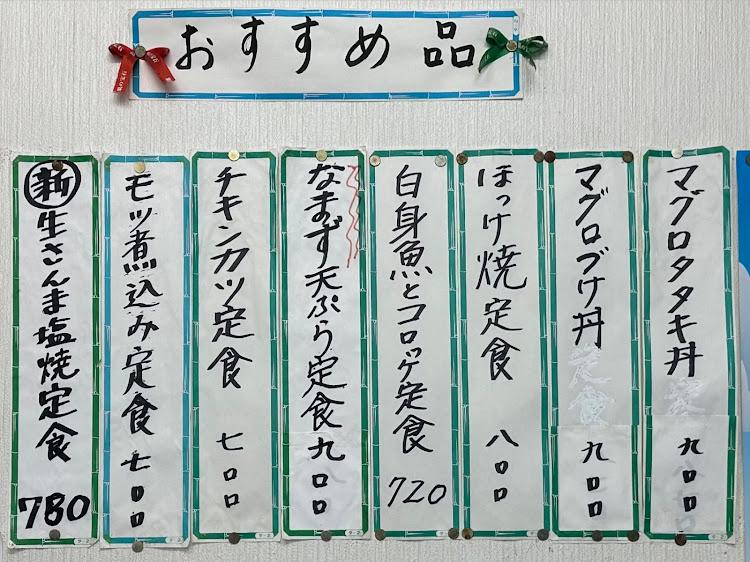 おすすめ品
マグロタタキ丼 九00
マグロづけ丼 定食 九00
ほっけ焼定食 八00
白身魚とコロッケ定食 720
なまず天ぷら定食 九00
チキンカツ定食 七00
モツ煮込み定食 七00
新生さんま塩焼定食 780